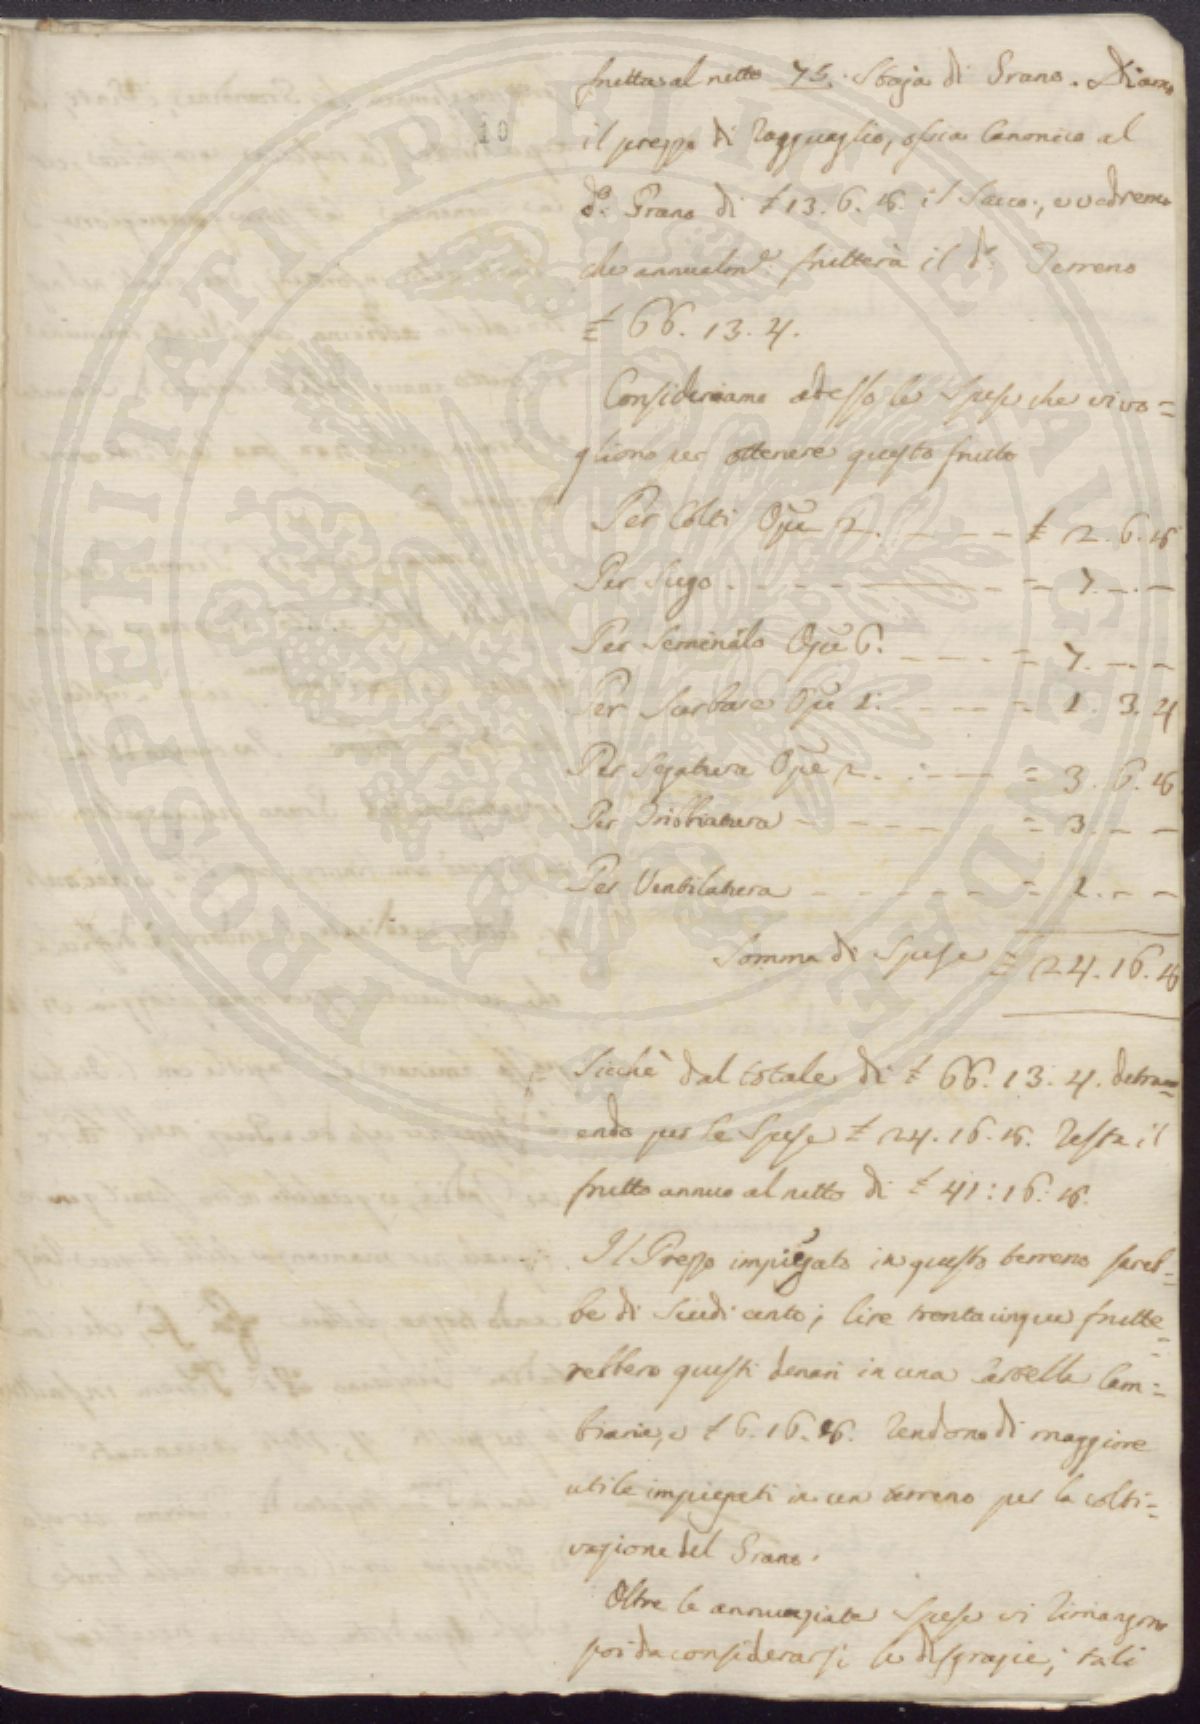 frutta al netto 75. Staja di Grano. Diamo
10
il prezzo di Ragguaglio, ossia Canonico al
do. Grano di £ 13. 6. 8. il Sacco, e vedremo
che annualme. frutterà il do. Terreno
£ 66. 13. 4.
Consideriamo adesso le Spese che vi vo=
gliono per ottenere questo frutto
Per Colti Ope 2. - - - - £ 2. 6. 8
Per Sugo - - - - = 7. -. -
Per Seminarlo Ope 6. - - - = 7. -. -
Per Sarbare Ope 1. - - - - = 1. 3. 4
Per Segatura Ope 2. - - - = 3. 6. 8
Per Tribbiatura - - - - - = 3. - -
Per Ventilatura - - - - - = 1. - -
Somma di Spese £ 24. 16. 8
Sicchè dal totale di £ 66. 13. 4. detra=
endo per le Spese £ 24. 16. 8. Resta il
frutto annuo al netto di £ 41: 16: 8.
Il Prezzo impiegato in questo terreno sareb=
be di Scudi cento; lire trentacinque frutte=
rebbero questi denari in una Cartella Cam=
biaria, e £ 6. 16. 8. Rendono di maggiore
utile impiegati in un terreno per la colti=
vazione del Grano.
Oltre le annunziate Spese vi Rimangono
poi da considerarsi le disgrazie; tali
PROSPERITATI PUBLICAE AUGENDAE